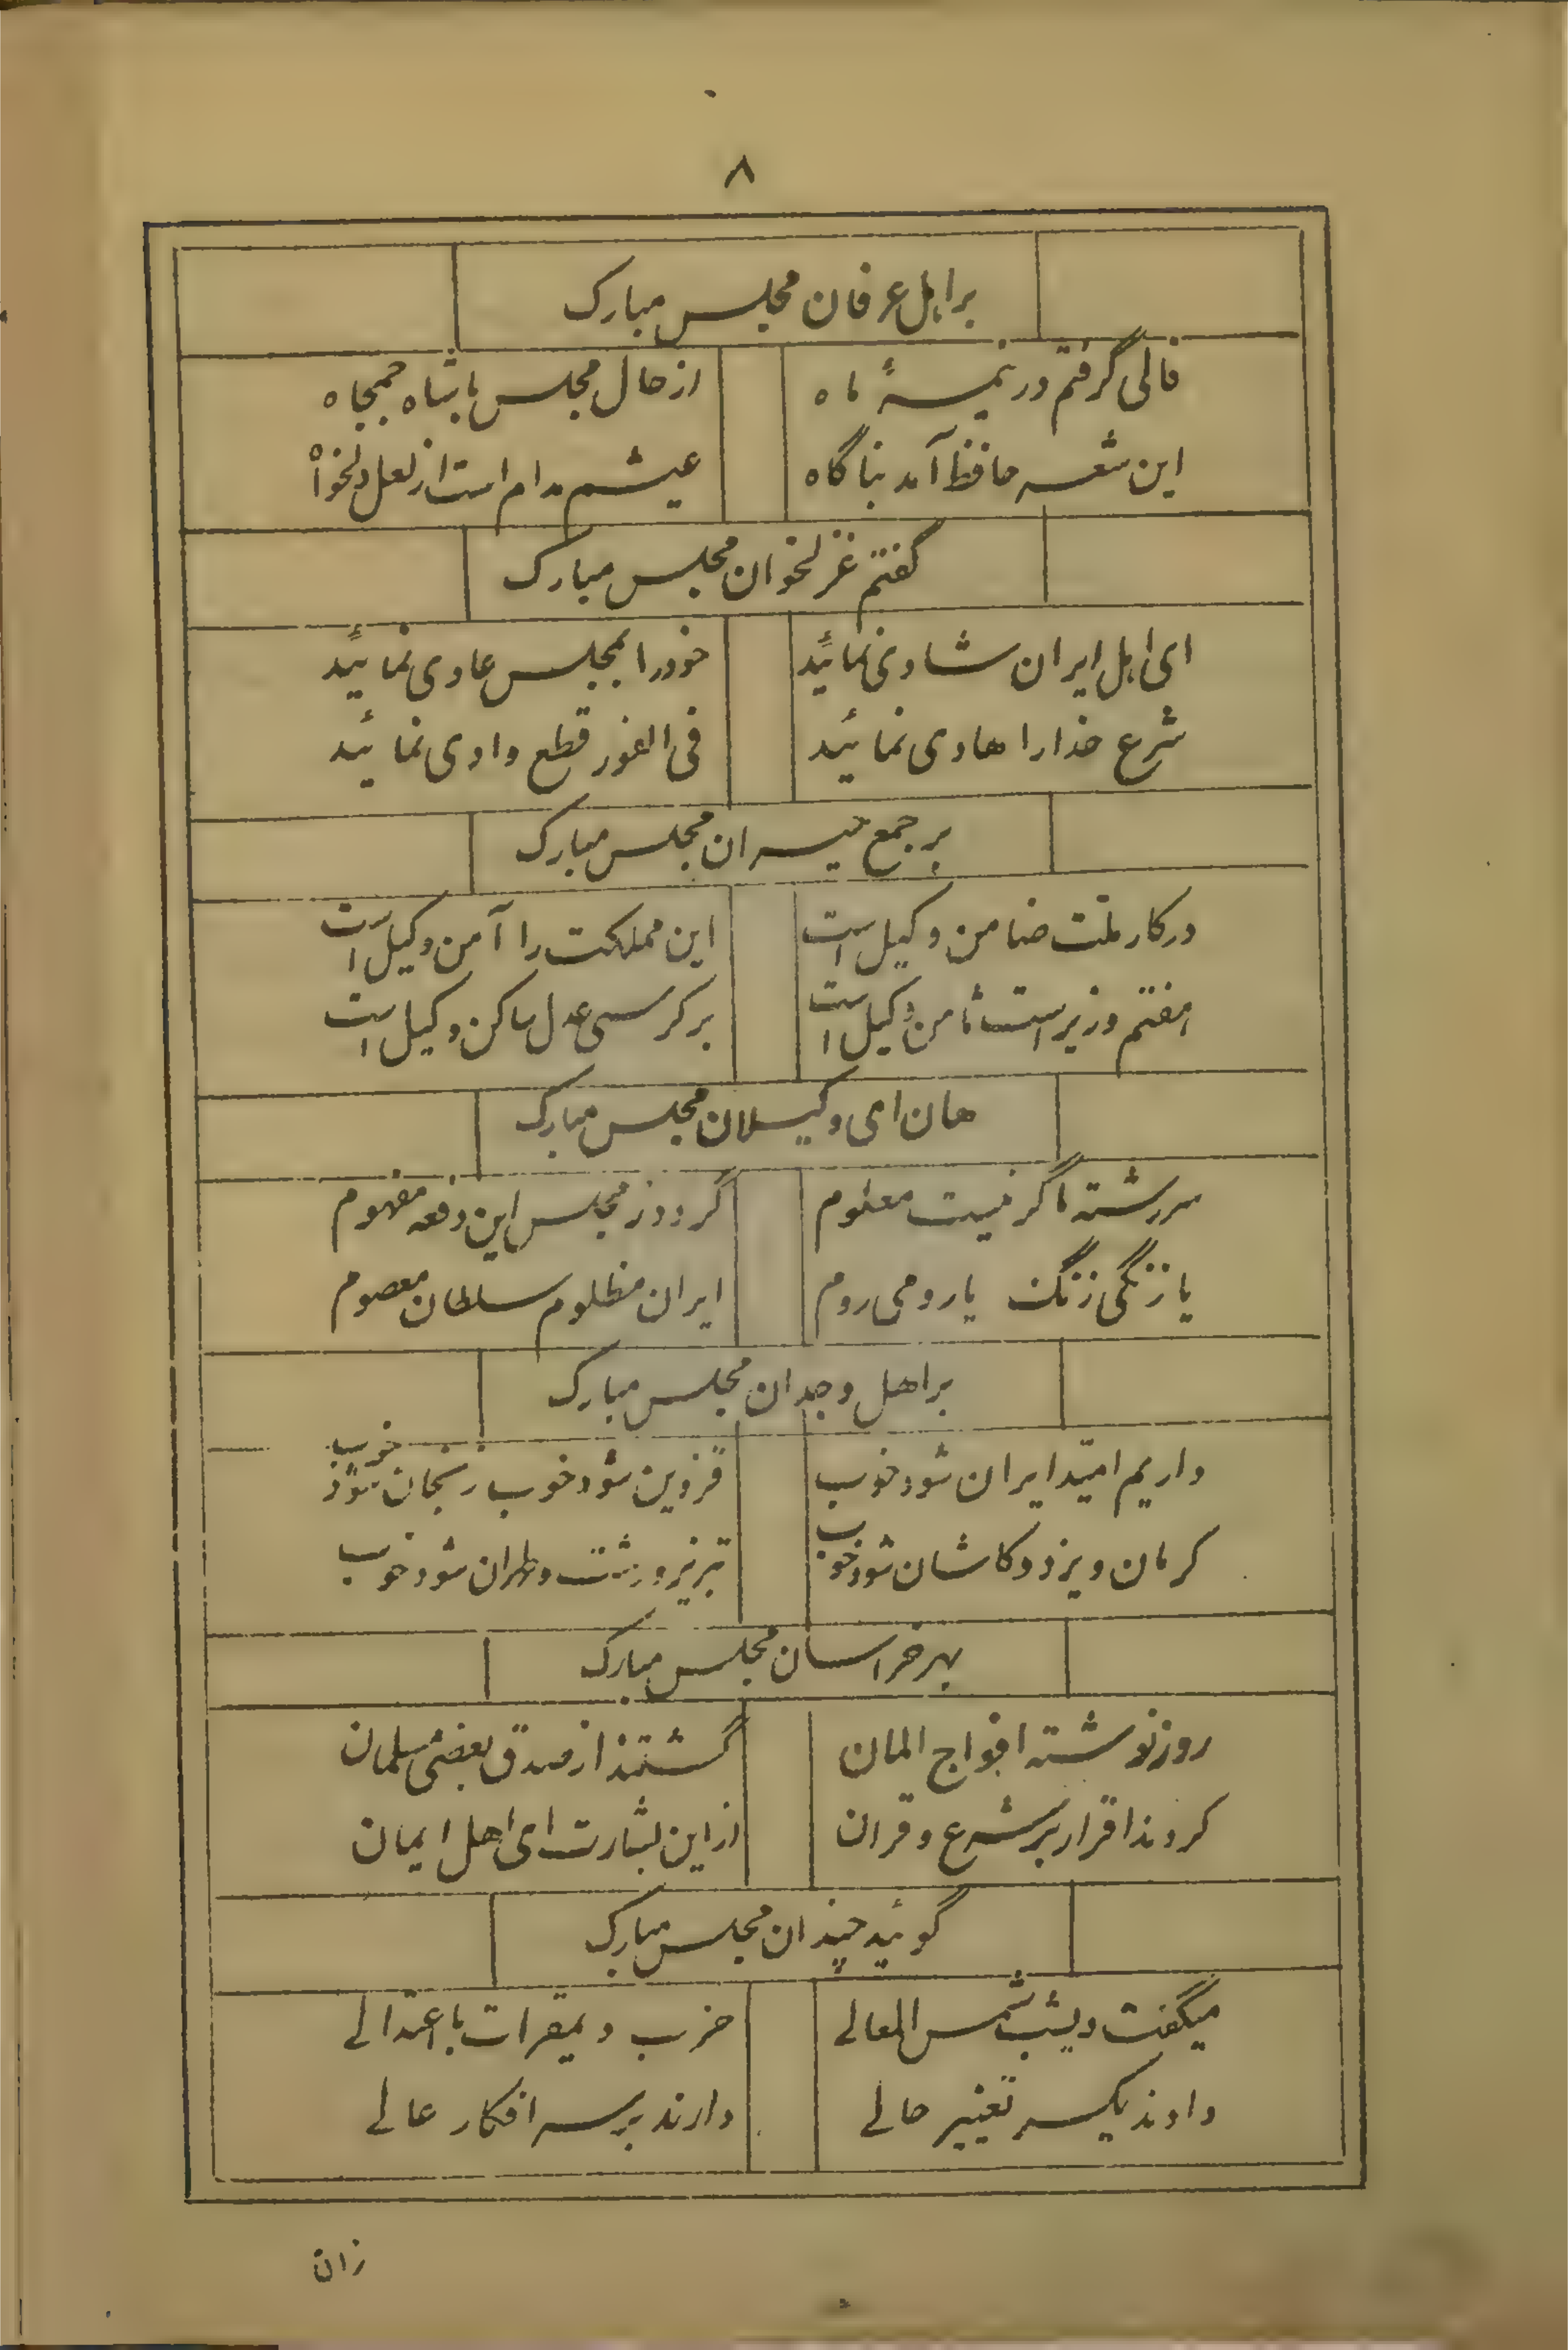 ۸
بر اهل عرفان مجلس مبارک
فالی گرفتم در نیمهٔ ماه از حال مجلس با شاه جمجاه
این شعر حافظ آمد بناگاه عیشم مدام است از لعل دلخواه
گفتم غزلخوان مجلس مبارک
ای اهل ایران شادی نمائید خود را بمجلس عادی نمائید
شرع خدا را هادی نمائید فی الفور قطع وادی نمائید
بر جمع حیران مجلس مبارک
در کار ملّت ضامن وکیل است این مملکت را آمن وکیل است
هفتم وزیر است ثامن وکیل است بر کرسی عدل ساکن وکیل است
هان ای وکیلان مجلس مبارک
سررشته ما گر نیست معلوم گردد ز مجلس این دفعه مفهوم
یا زنگی زنگ یا رومی روم ایران مظلوم سلطان معصوم
بر اهل وجدان مجلس مبارک
داریم امیّد ایران شود خوب قزوین شود خوب زنجان شود خوب
کرمان و یزد و کاشان شود خوب تبریز و رشت و طهران شود خوب
بهر خراسان مجلس مبارک
روزنوشته افواج المان گشتند از صدق بعضی مسلمان
کردند اقرار بر شرع و قران از این بشارت ای اهل ایمان
گوئید چندان مجلس مبارک
میگفت دیشب شمس المعالی حزب دیمقرات با اعتدالی
دادند یکسر تغییر حالی دارند بر سر افکار عالی
زان